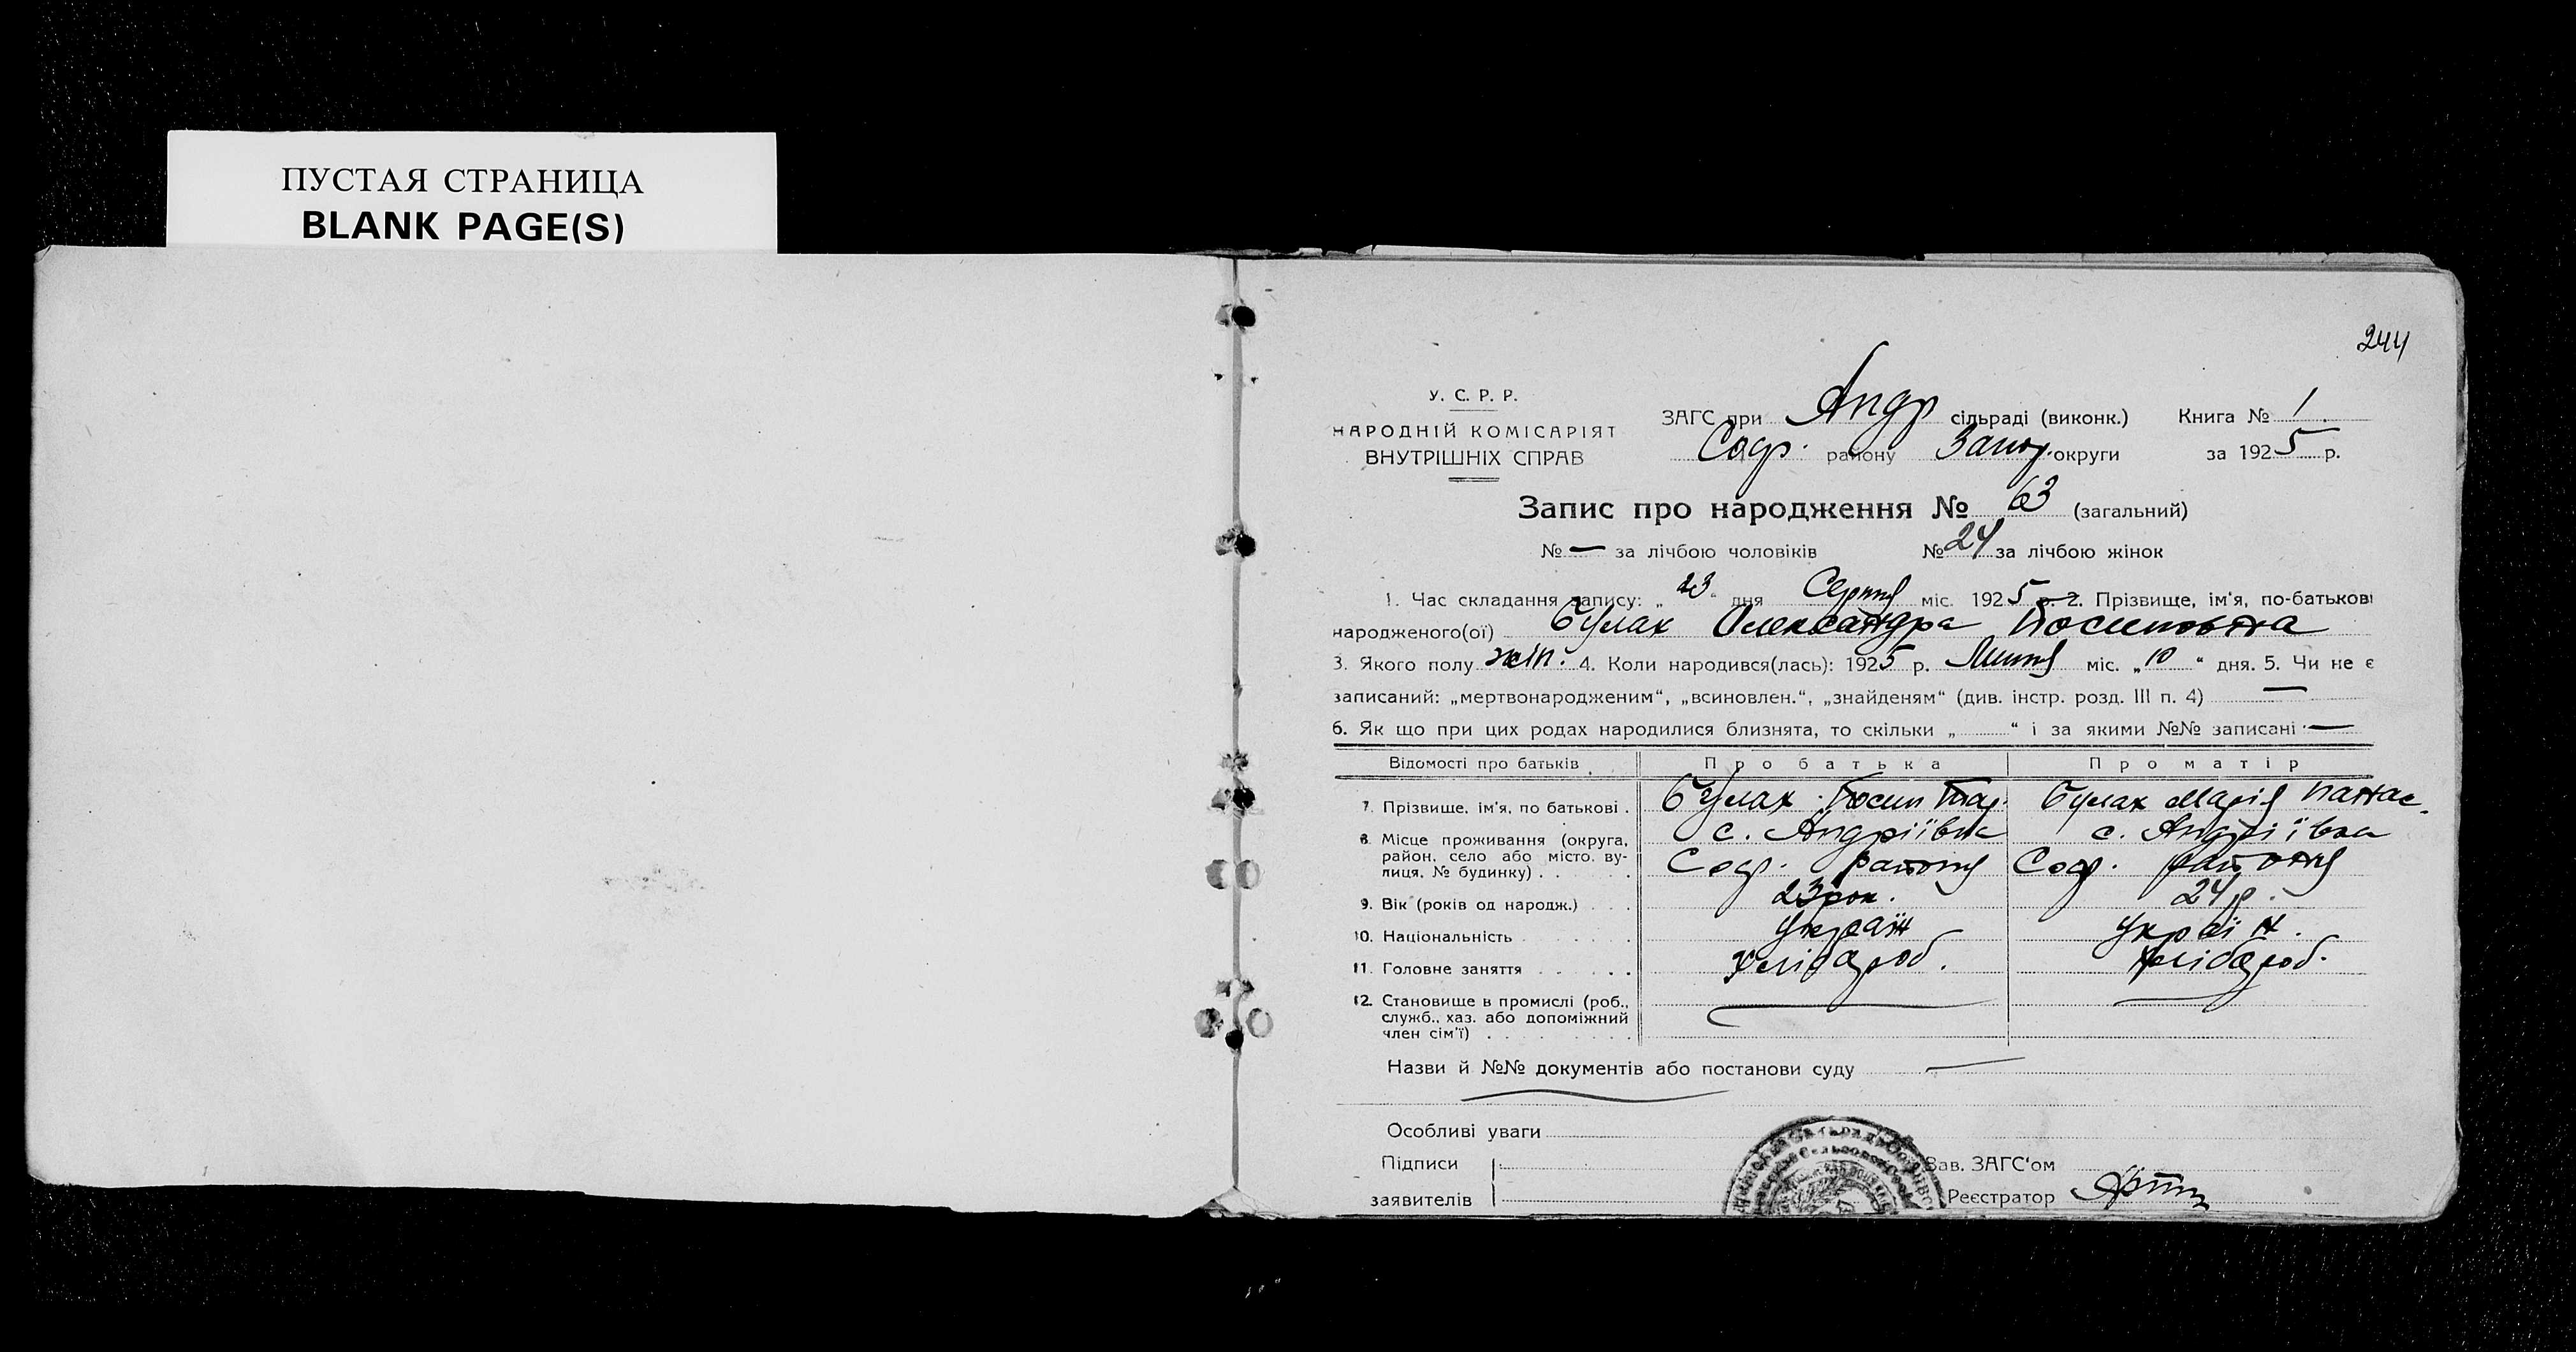 ПУСТАЯ СТРАНИЦА
BLANK PAGE(S)
244
У. С. Р. Р.
НАРОДНІЙ КОМІСАРІЯТ
ВНУТРІШНІХ СПРАВ
ЗАГС при Андр сільраді (виконк.) Книга № 1
Соф. району Запор. округи за 1925 р.
Запис про народження № 63 (загальний)
№ — за лічбою чоловіків № 24 за лічбою жінок
1. Час складання запису: „23“ дня Серпня міс. 1925 р. 2. Прізвище, ім'я, по-батькові
народженого(ої) Булах Олександра Йосиповна
3. Якого полу жін. 4. Коли народився(лась): 1925 р. Липня міс. „10“ дня. 5. Чи не є
записаний: „мертвонародженим“, „всиновлен.“, „знайденям“ (див. інстр. розд. III п. 4) —
6. Як що при цих родах народилися близнята, то скільки „ “ і за якими №№ записані —
Відомості про батьків Про батька Про матір
7. Прізвище, ім'я, по батькові . Булах Йосип Булах Марія Панас.
8. Місце проживання (округа, с. Андріївка с. Андріївка
район, село або місто, ву-
лиця, № будинку) . . Соф. района Соф. района
9. Вік (років од народж.) . . . 23 рок. 24 р.
10. Національність Україн Україн.
11. Головне заняття . . . . . Хлібороб. Хлібороб.
12. Становище в промислі (роб.,
служб., хаз. або допоміжний
член сім'ї) . . . . . . . .
Назви й №№ документів або постанови суду —
Особливі уваги
Підписи
заявителів
Зав. ЗАГС'ом
Реєстратор